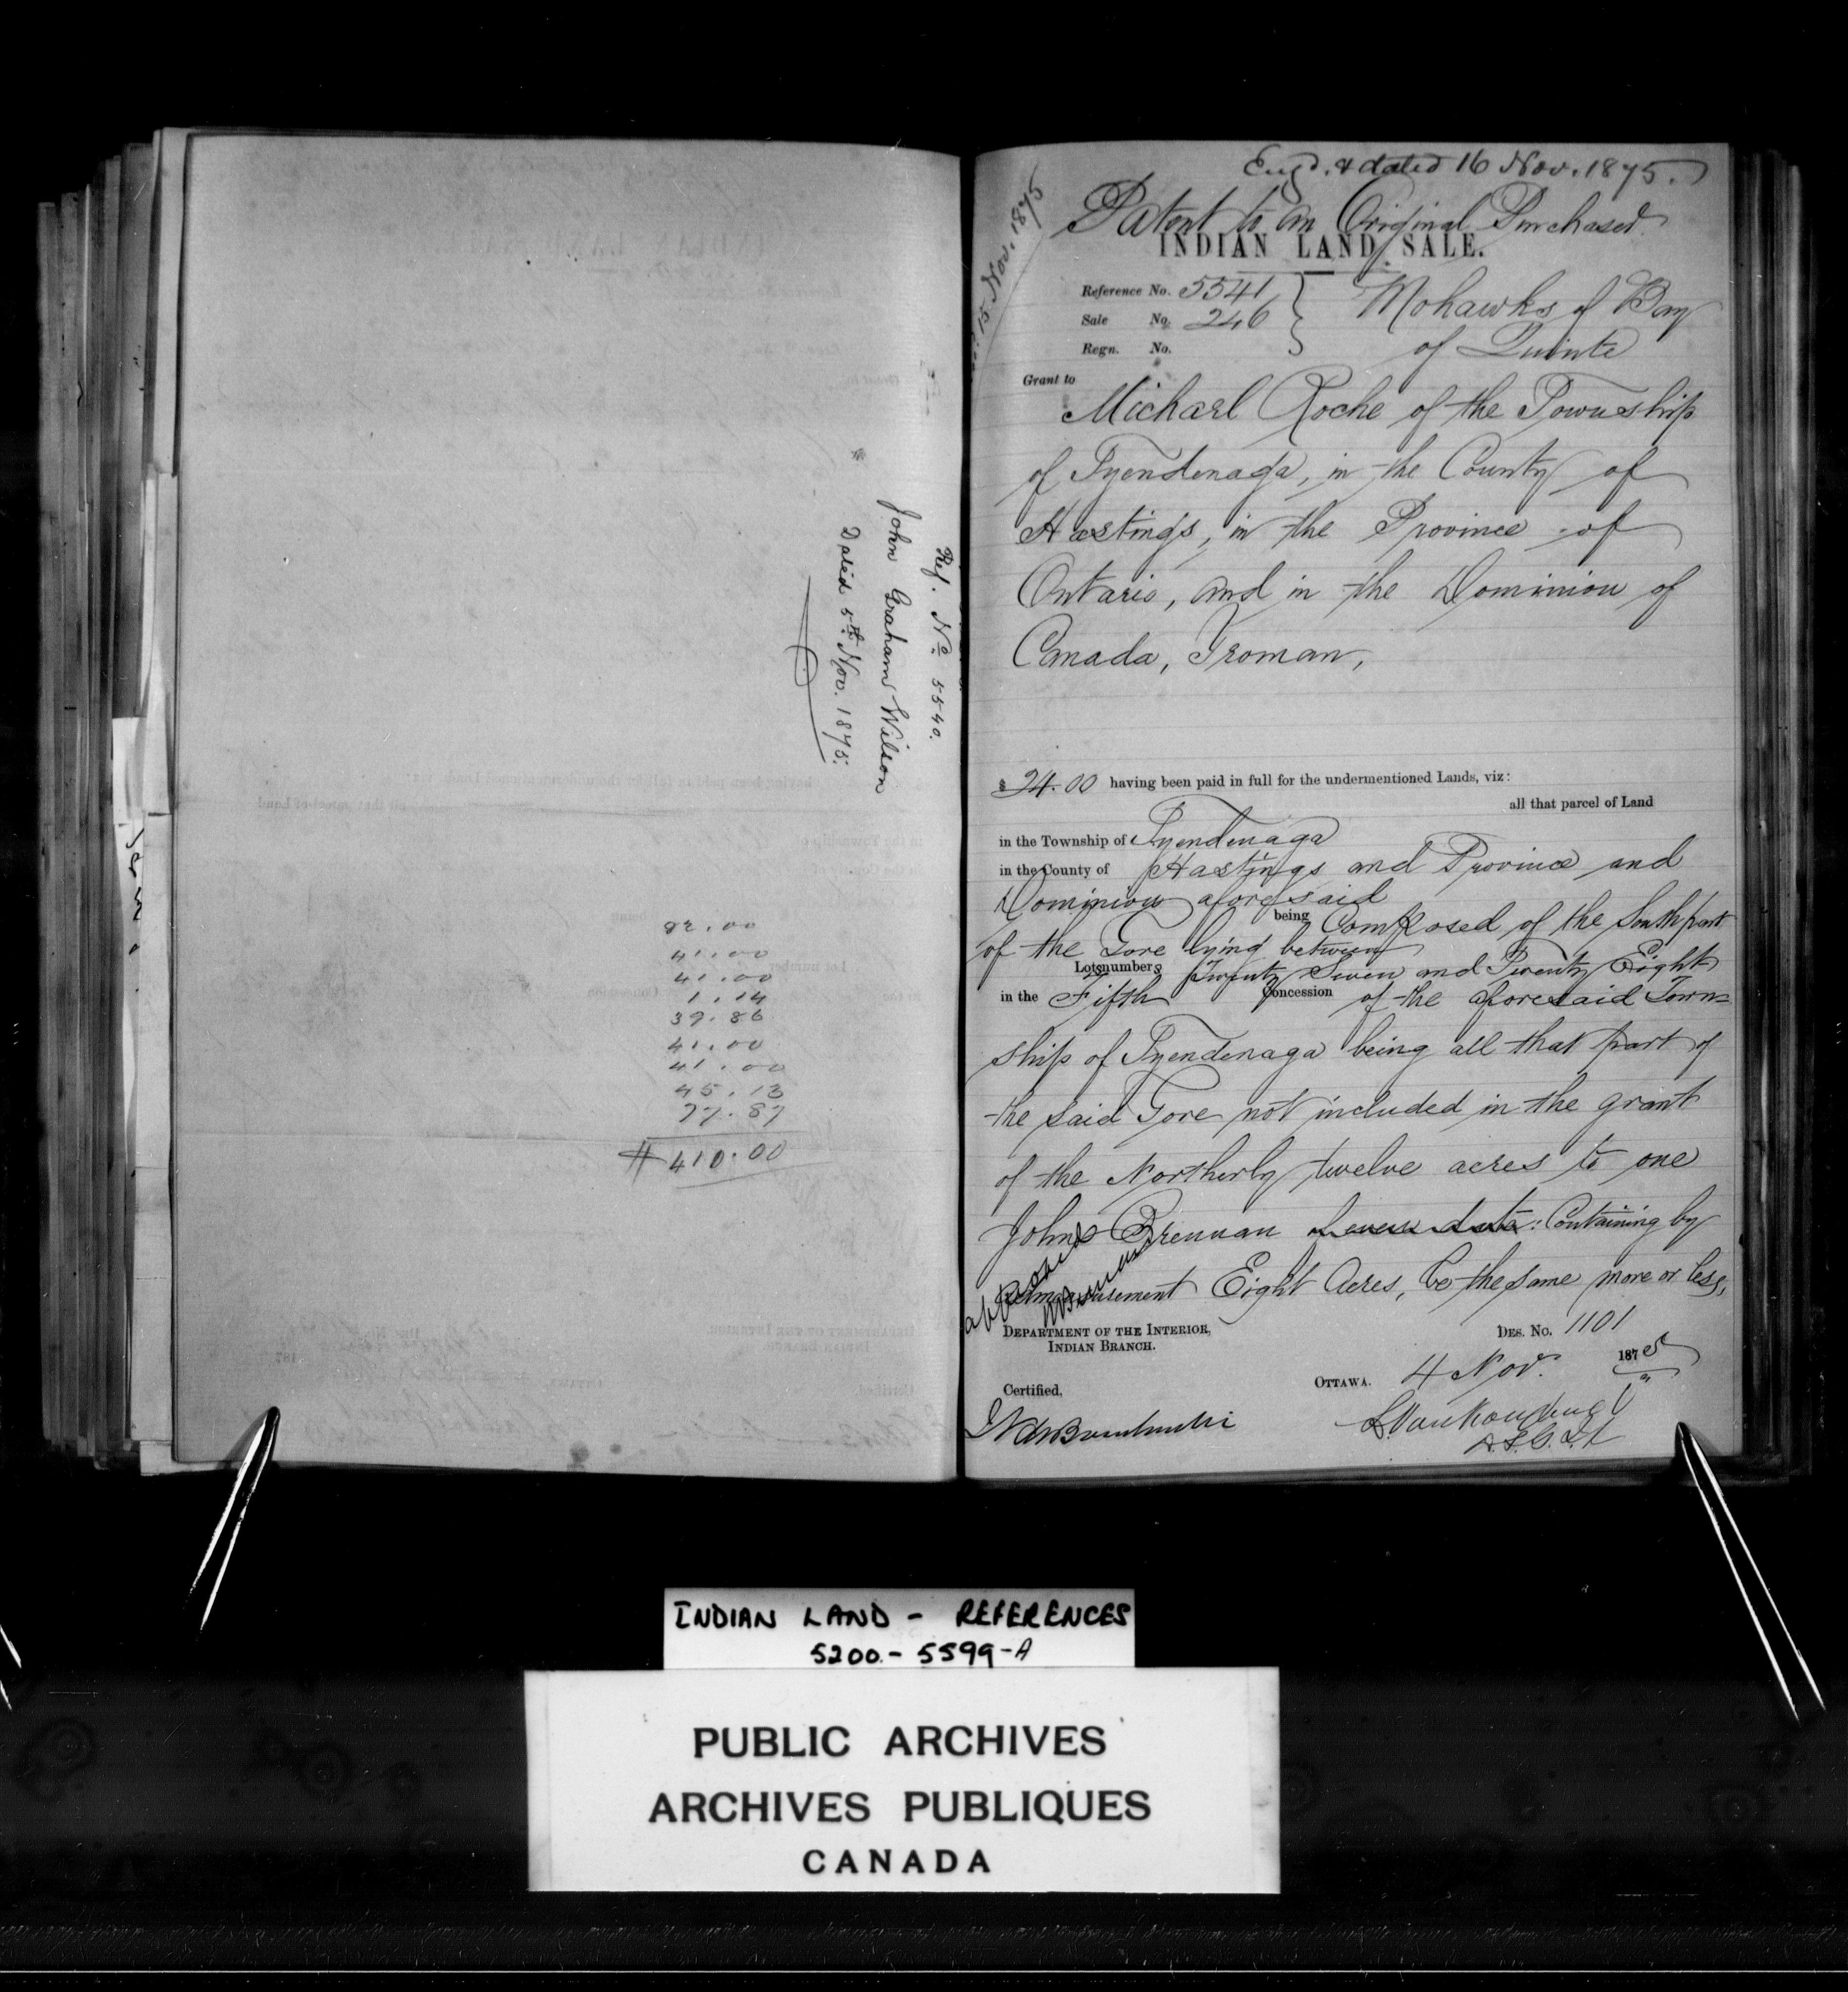 Ref. No 5540.
John Graham Wilson
Dated 5th Nov. 1875.
82.00
41.00
41.00
1.14
39.86
41.00
41.00
45.13
77.87
$410.00
Engd. & dated 16 Nov. 1875.
15 Nov. 1875
Patent to an Original Purchaser
INDIAN LAND SALE.
Reference No. 5541
Sale No. 246
Regn. No.
Mohawks of Bay
of Quinte
Grant to
Michael Roche of the Township
of Tyendenaga, in the County of
Hastings, in the Province of
Ontario, and in the Dominion of
Canada, Yeoman,
$24.00 having been paid in full for the undermentioned Lands, viz:
all that parcel of Land
in the Township of Tyendenaga
in the County of Hastings and Province and
Dominion aforesaid
being Composed of the South part
of the Gore lying between
Lots numbers Twenty Seven and Twenty Eight
in the Fifth Concession of the aforesaid Town=
ship of Tyendenaga being all that part of
the said Gore not included in the grant
of the Northerly twelve acres to one
John Brennan of even date: Containing by
admeasurement Eight Acres, be the same more or less,
DEPARTMENT OF THE INTERIOR,
INDIAN BRANCH.
DES. No. 1101
OTTAWA. 4 Nov. 1875
Certified,
L. VanKoughnet
D.S.G.I.A
INDIAN LAND - REFERENCES
5200 - 5599-A
PUBLIC ARCHIVES
ARCHIVES PUBLIQUES
CANADA